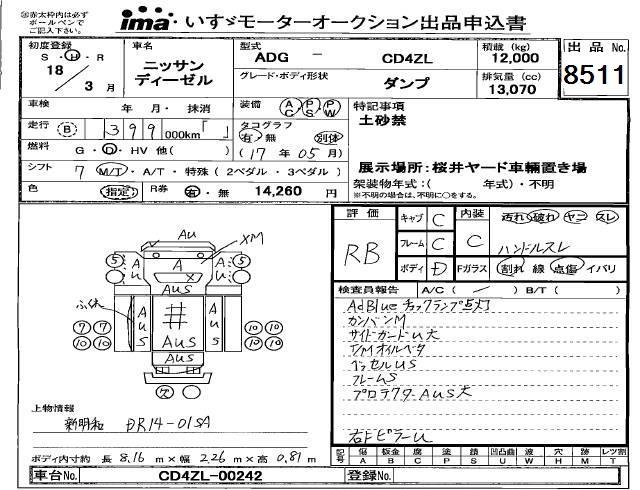 ※赤太枠内は必ず
ボールペンで
ご記入下さい。
ima・いすゞモーターオークション出品申込書
初度登録
S・H・R
18
3 月
車名
ニッサン
ディーゼル
型式
ADG － CD4ZL
グレード・ボディ形状
ダンプ
積載 (kg)
12,000
排気量 (cc)
13,070
出品 No.
8511
車検 年 月・ 抹消
装備 AC PS PW
特記事項
土砂禁
走行 B 399 000km「 」
タコグラフ
有・無 別体
(17 年 05 月)
燃料 G・D・HV 他( )
展示場所:桜井ヤード車輌置き場
シフト 7 M/T・A/T・特殊(2ペダル・3ペダル)
架装物年式:( 年式)・不明
※不明の場合は、不明に○をする。
色 指定 R券 有・無 14,260 円
評価
RB
キャブ C
フレーム C
ボディ D
内装
C
Fガラス
汚れ 破れ ヤニ スレ
ハンドルスレ
割れ 線 点傷 イバリ
AU
XM
5 A A A 5
X
AUS
AUS # AUS
7 7 10 10
10 10 10 10
AUS
AUS
検査員報告 A/C ( ／ ) B/T ( )
AdBlueチェックランプ点灯
カンバンM
サイドガードU大
T/Mオイルベタ
ベッセルUS
フレームS
プロテクターAUS大
右ドピラーU
上物情報
新明和 DR14-01SA
ボディ内寸約 長 8.16 m×幅 2.26 m×高 0.81 m
記号 傷 A 板金 B 腐 C 塗 P 錆 S 凹凸曲 U 波 W 穴 H 跡 M レツ割 T
車台No. CD4ZL-00242 登録No.